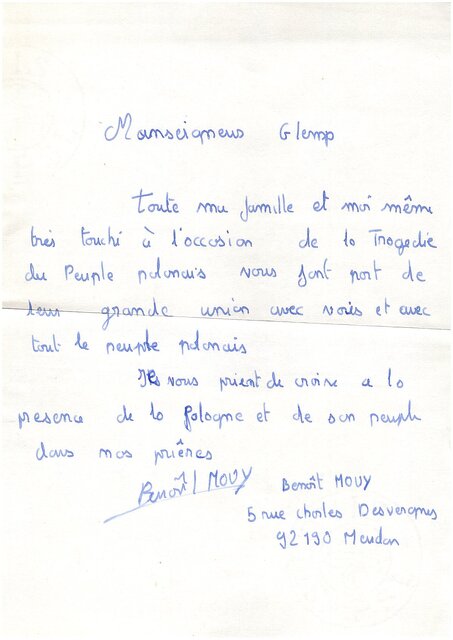 Monseigneur Glemp
toute ma famille et moi même
très touché à l'occasion de la Tragedie
du Peuple polonais vous font part de
leur grande union avec vous et avec
tout le peuple polonais
Ils vous prient de croire a la
presence de la Pologne et de son peuple
dans nos prières
Benoît MOUY
Benoît MOUY
5 rue charles Desvergnes
92190 Meudon